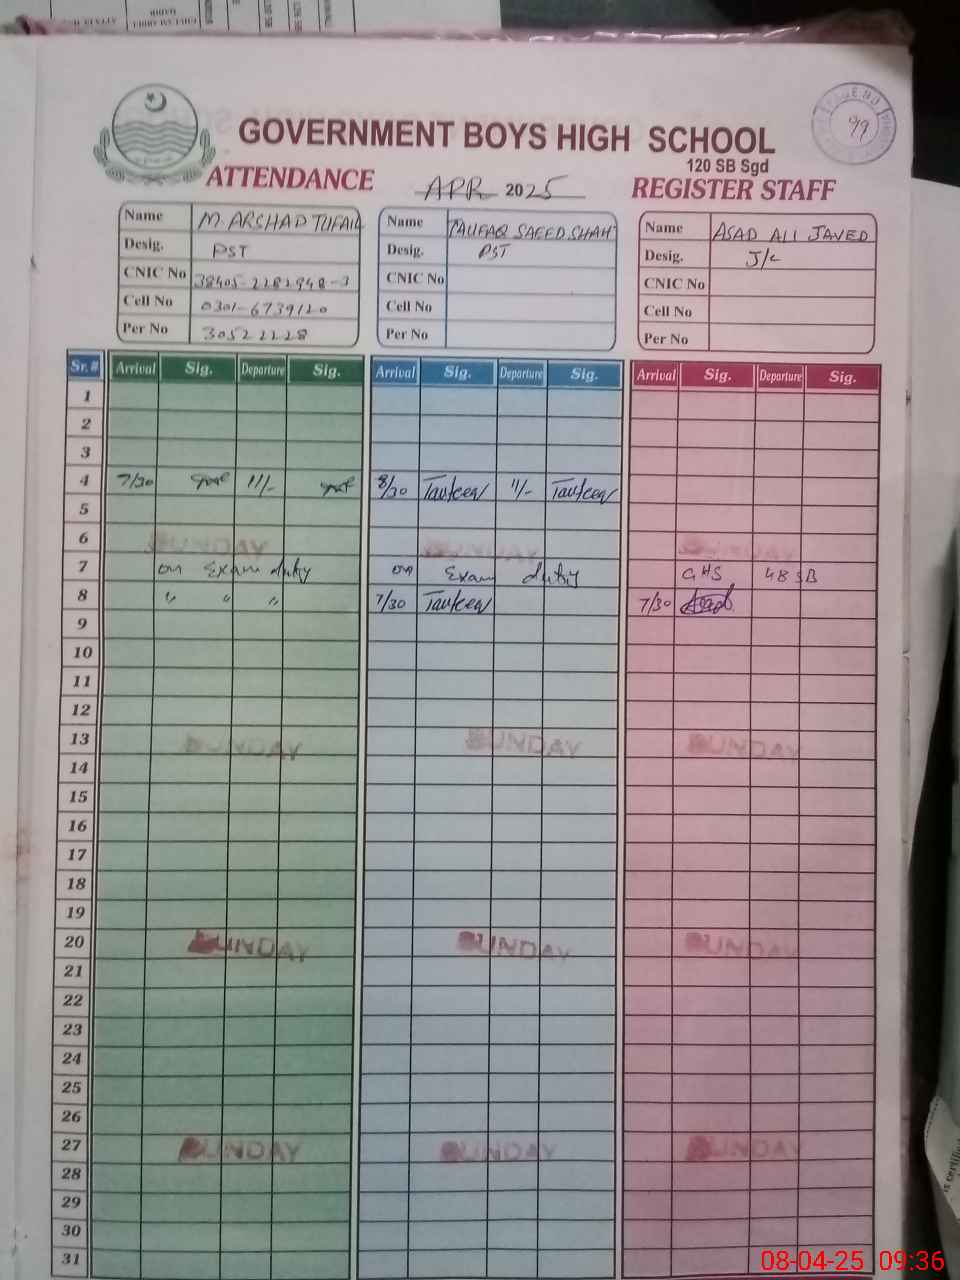 GOVERNMENT BOYS HIGH SCHOOL
120 SB Sgd
PAGE NO
99
ATTENDANCE APR 2025 REGISTER STAFF
Name M. ARSHAD TUFAIL
Desig. PST
CNIC No 38405-2282948-3
Cell No 0301-6739120
Per No 30522228
Name TAUFAQ SAEED SHAH
Desig. PST
CNIC No
Cell No
Per No
Name ASAD ALI JAVED
Desig. J/C
CNIC No
Cell No
Per No
Sr.# Arrival Sig. Departure Sig. Arrival Sig. Departure Sig. Arrival Sig. Departure Sig.
1
2
3
4 7/30 11/- 8/30 11/-
5
6 SUNDAY SUNDAY SUNDAY
7 on Exam duty on Exam duty GHS 48 SB
8 " " " 7/30 7/30
9
10
11
12
13 SUNDAY SUNDAY SUNDAY
14
15
16
17
18
19
20 SUNDAY SUNDAY SUNDAY
21
22
23
24
25
26
27 SUNDAY SUNDAY SUNDAY
28
29
30
31
08-04-25 09:36